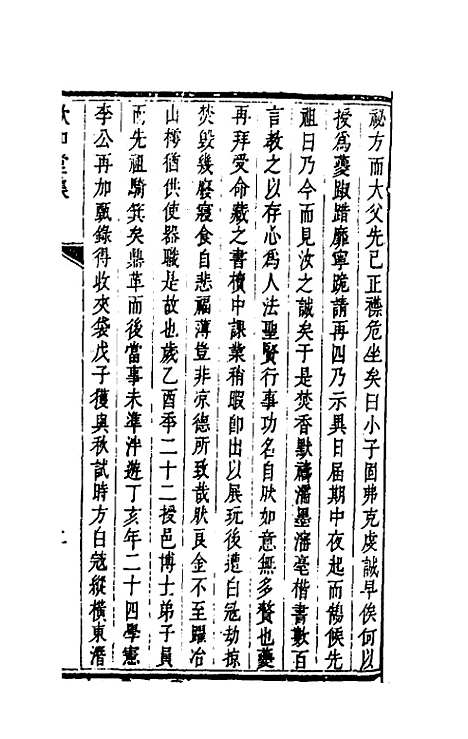 祕方而大父先已正襟危坐矣曰小子固弗克虔誠早俟何以
授爲夔踧踖靡寧跪請再四乃示異日届期中夜起而鵠候先
祖曰乃今而見汝之誠矣于是焚香默禱濡墨濡毫楷書數百
言教之以存心爲人法聖賢行事功名自狀如意無多贅也夔
再拜受命藏之書櫝中課業稍暇卽出以展玩後遭白冦劫掠
焚毀幾廢寢食自悲福薄豈非凉德所致哉狀良金不至躍冶
山樗猶供使器職是故也歲乙酉季二十二授邑博士弟子員
而先祖騎箕矣鼎革而後當事未準泮遊丁亥年二十四學憲
李公再加甄錄得收夾袋戊子獲與秋試時方白冦縱橫東潛